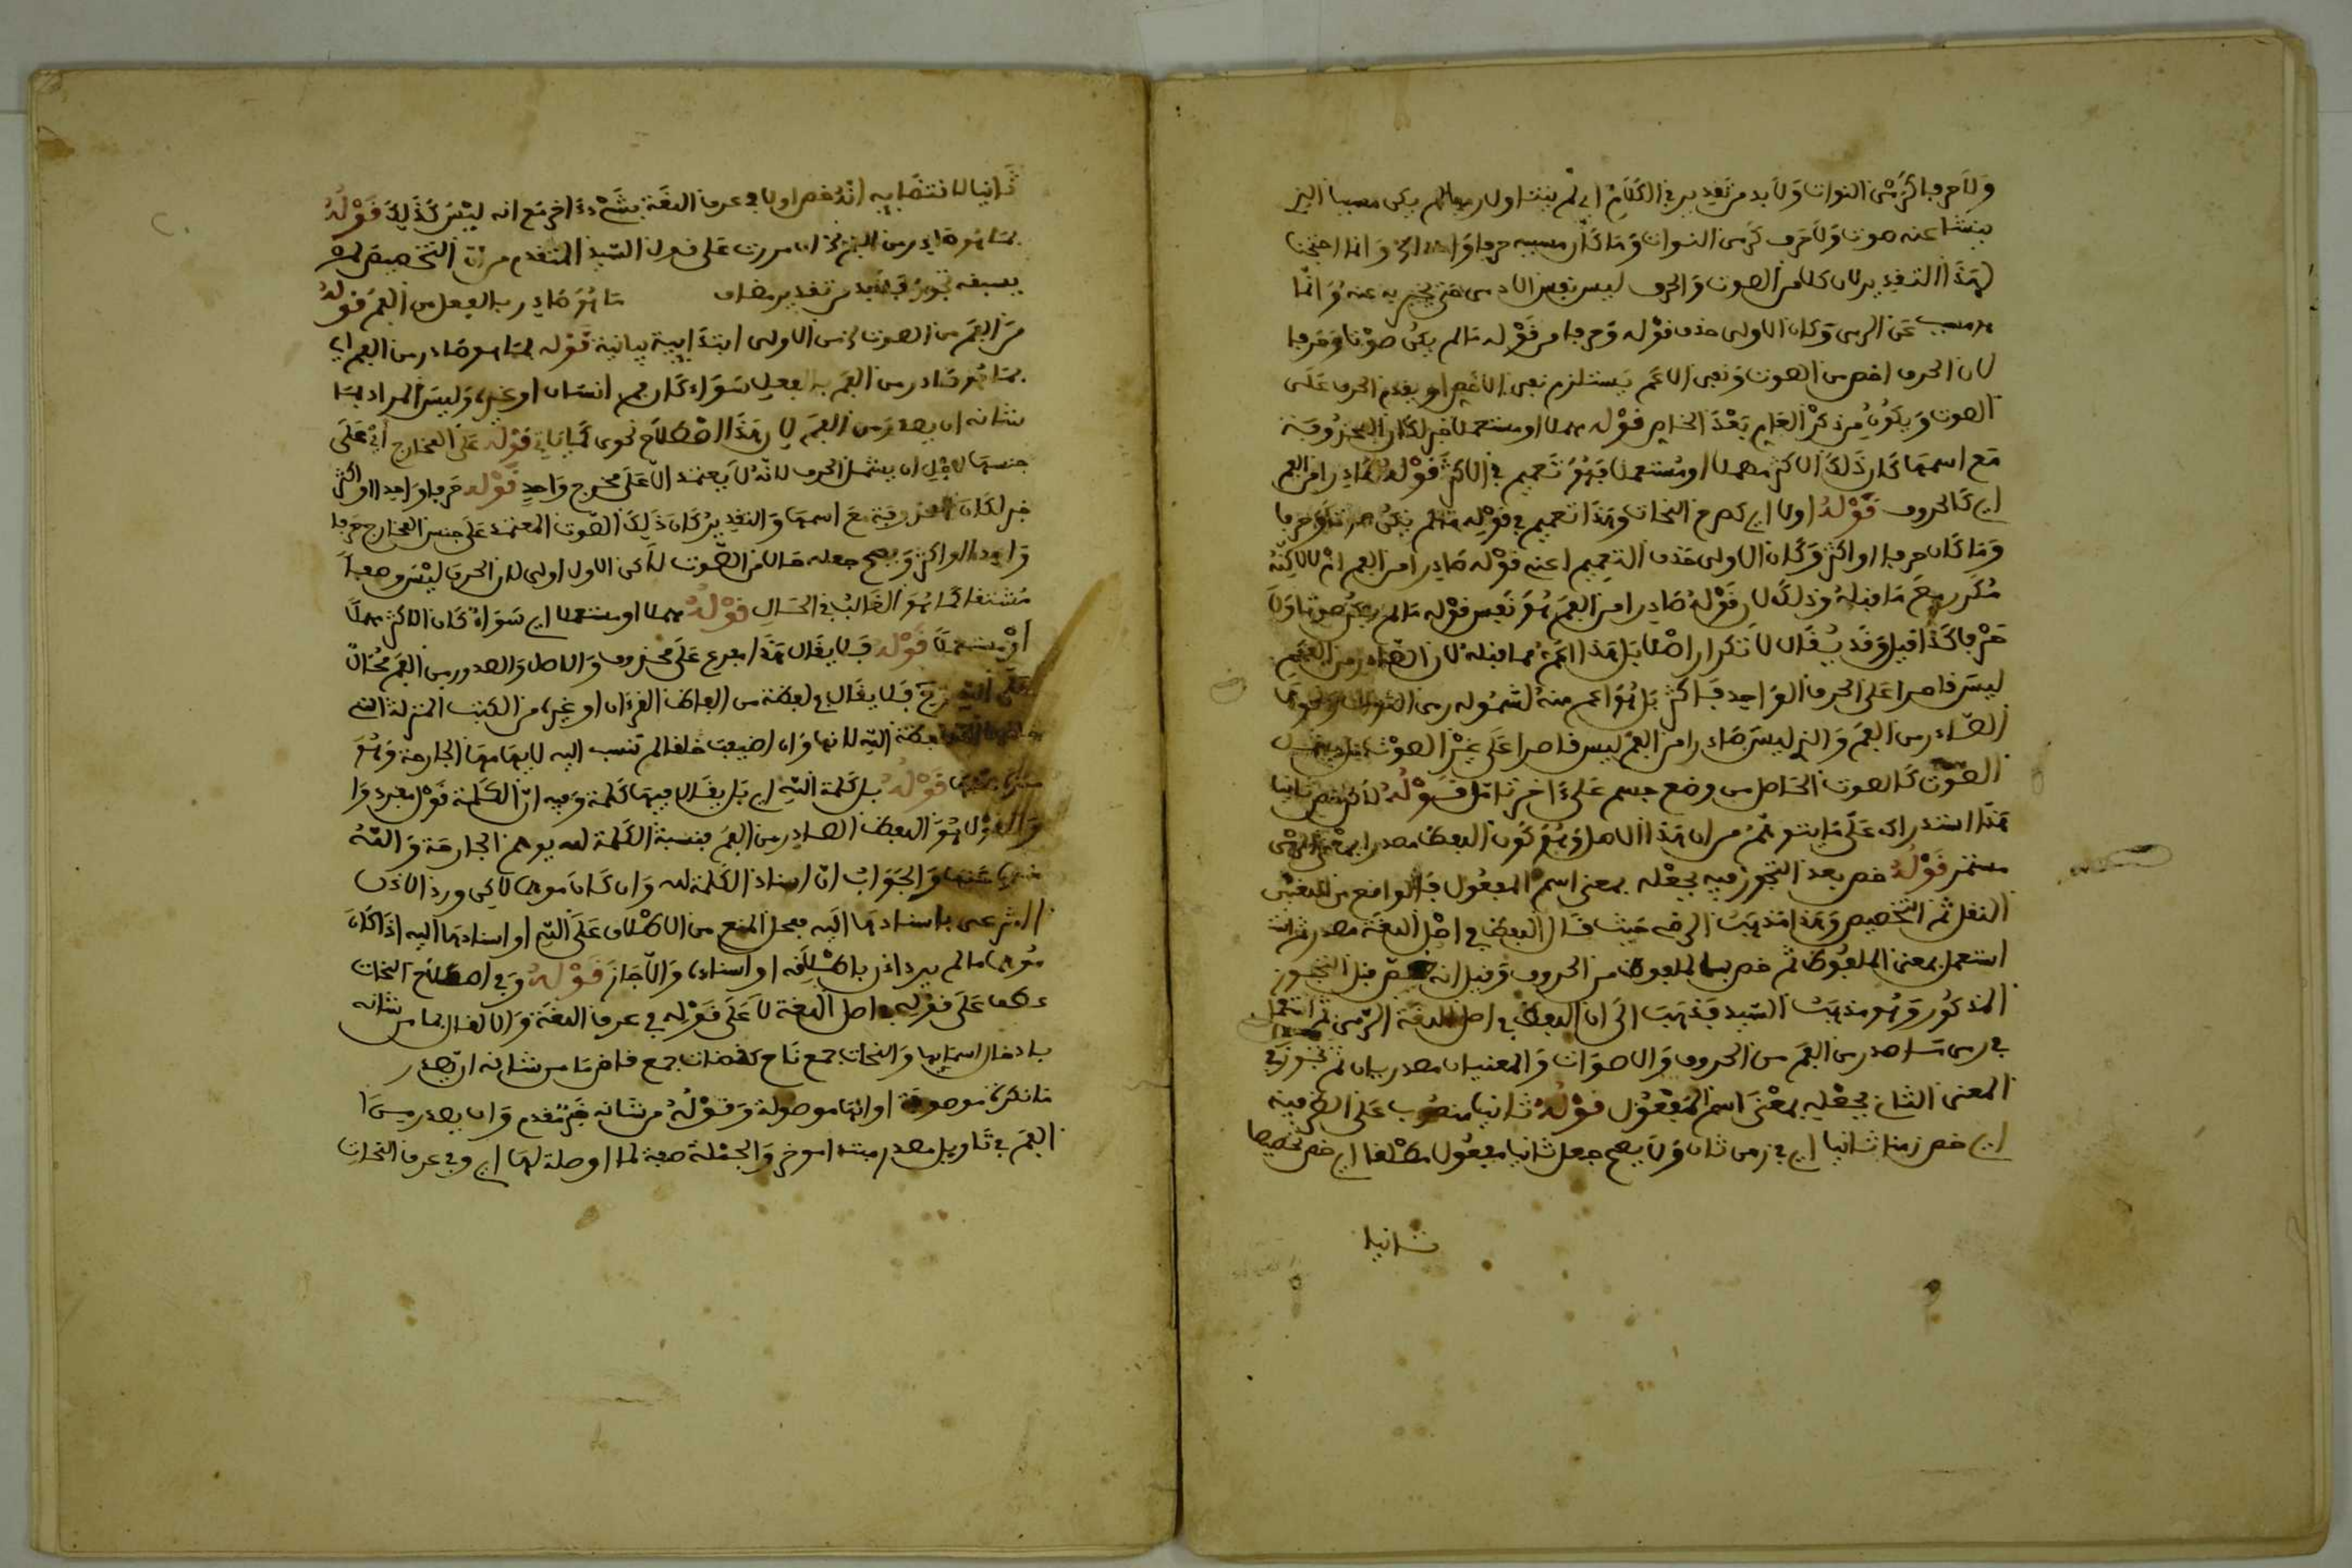 ولا حرفا كرمي النوات ولا بد من تقدير في الكلام اي لم يتناول رميا لم يكن مسببا الذي
ينشا عنه صوت ولا حرف كرمي النوات وما كان مسببه حرفا او اكثر وانما احتجنا
لهذا التقدير لان كلا من الصوت والحرف ليس نفس الرمي حتى يخبر به عنه وانما
هو مسبب عن الرمي وكان الاولى حذف قوله وحرفا من قوله ما لم يكن صوتا وحرفا
لان الحرف اخص من الصوت ونفي الاعم يستلزم نفي الاخص او يقدم الحرف على
الصوت ويكون من ذكر العام بعد الخاص قوله مهملا او مستعملا خبر لكان المحذوفة
مع اسمها كان ذلك الاكثر مهملا او مستعملا فهو تعميم في الاكثر قوله صادرا من الفم
اي كالحروف قوله اولا اي كصرح النحات وهذا تعميم في قوله ما لم يكن صوتا وحرفا
وما كان حرفا او اكثر وكان الاولى حذف التعميم اعني قوله صادرا من الفم ام لا لانه
مكرر مع ما قبله وذلك لان قوله صادرا من الفم هو نفس قوله ما لم يكن صوتا ولا
حرفا كذا قيل وقد يقال لا تكرار اصلا بل هذا اعم مما قبله لان الصادر من الفم
ليس قاصرا على الحرف الواحد فاكثر بل هو اعم منه لشموله رمي النوات ونحوها
الصادر من الفم والذي ليس صادرا من الفم ليس قاصرا على غير الصوت بل يشمل
الصوت كالصوت الحاصل من وضع جسم على اخر تامل قوله لكن خص ثانيا
هذا استدراك على ما يتوهم من ان هذا الاصل وهو كون اللفظ مصدرا بمعنى الرمي
مستمر قوله خص بعد التجوز فيه بجعله بمعنى اسم المفعول فالواقع من المعنى
النقل ثم التخصيص وهذا مذهب الرضي حيث قال اللفظ في اصل اللغة مصدر ثم
استعمل بمعنى الملفوظ ثم خص بالملفوظ من الحروف وقيل انه خص قبل التجوز
المذكور وهو مذهب السيد فذهب الى ان اللفظ في اصل اللغة الرمي ثم استعمل
في رمي ما صدر من الفم من الحروف والاصوات والمعنيان مصدريان ثم تجوز في
المعنى الثاني بجعله بمعنى اسم المفعول قوله ثانيا منصوب على الظرفية
اي خص زمنا ثانيا اي في زمن ثان ولا يصح جعل ثانيا مفعولا مطلقا اي خص تخصيصا
ثانيا
ثانيا لاقتضايه انه خص اولا في عرف اللغة بشيء اخر مع انه ليس كذلك قوله
بما هو صادر من الفم ان مررت على قول السيد المتقدم من ان التخصيص لم
يسبقه تجوز فلابد من تقدير مضاف ما هو صادر بالفعل من الفم قوله
من الفم من الصوت من الاولى ابتدايية بيانية قوله بما هو صادر من الفم اي
بما هو صادر من الفم بالفعل سواء كان فم انسان او غيره وليس المراد بما
شانه ان يصدر من الفم لان هذا اصطلاح نحوي كما ياتي قوله على المخارج اي على
جنسها لاجل ان يشمل الحرف لانه لا يعتمد الا على مخرج واحد قوله حرفا واحدا او اكثر
خبر لكان المحذوفة مع اسمها والتقدير كان ذلك الصوت المعتمد على جنس المخارج حرفا
واحدا او اكثر ويصح جعله حالا من الصوت لكن الاول اولى لان الحرف ليس وصفا
مشتقا كما هو الغالب في الحال قوله مهملا او مستعملا اي سواء كان الاكثر مهملا
او مستعملا قوله فلا يقال هذا مفرع على محذوف والاصل والصدور من الفم محال
على الله تعالى فلا يقال في لفظة من الفاظ القرءان او غيره من الكتب المنزلة التي
لفظة الله لانها وان اضيفت خلقا لم تنسب اليه لايهامها الجارحة وهو
منزه عنها قوله بل كلمة الله اي بل يقال فيها كلمة وفيه ان الكلمة قول مفرد وا
والقول هو اللفظ الصادر من الفم فنسبة الكلمة لله يوهم الجارحة والله
منزه عنها والجواب ان اسناد الكلمة لله وان كان موهما لاكن ورد الاذن
الشرعي باسنادها اليه فمحل المنع من الاطلاق على الله او اسنادها اليه اذا كان
موهما ما لم يرد اذن باطلاقه او اسناده والا جاز قوله وفي اصطلاح النحات
عطف على قوله في اصل اللغة لا على قوله في عرف اللغة والا لقال بما من شانه
بادخال اسمايها والنحات جمع ناح كقضات جمع قاض ما من شانه ان يصدر
ما نكرة موصوفة او انها موصولة وقوله من شانه خبر مقدم وان يصدر من
الفم في تاويل مصدر مبتدا موخر والجملة صفة لما او صلة لها اي وفي عرف النحات